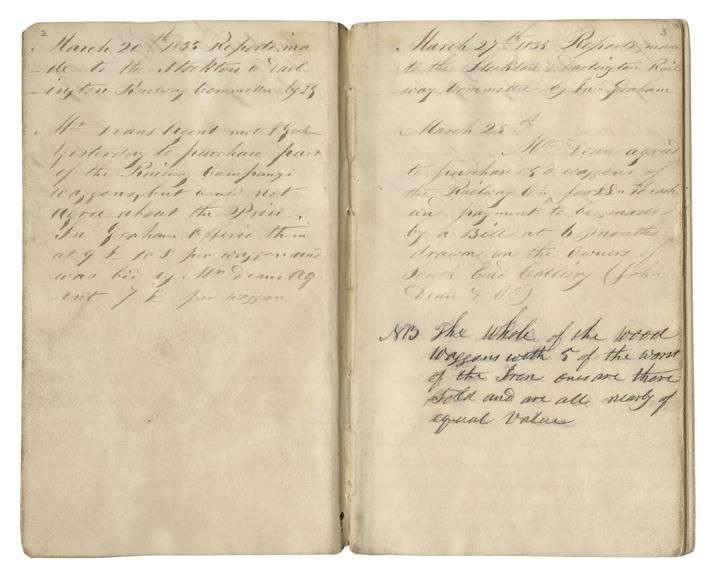 2
March 20th 1835 Reports, ma
de to the Stockton & Darl-
ington Railway Committee by JG
Mr Deans Agent met J Grah-
Yesterday to purchase part
of the Railway Companys
waggons, but could not
agree about the Price,
Jno Graham Offerd them
at 9 £ 10 s per waggon and
was bid by Mr Deans Ag
-ent 7 £ per waggon
3
March 27th 1835 Reports, made
to the Stockton & Darlington Rail
way Committee by Jno Graham
March 25th
Mr Dean agreed
to purchase 50 waggons of
the Railway Co for £8 " 10 each
and payment to be made
by a Bill at 6 Months
drawn on the Owners of
South End Colliery (John
Dean & Co)
NB The Whole of the wood
Waggons with 5 of the worst
of the Iron ones are those
Sold and are all nearly of
equal Value